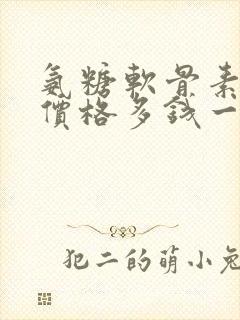 氨糖軟骨素
價格多錢一
犯二的萌小兔